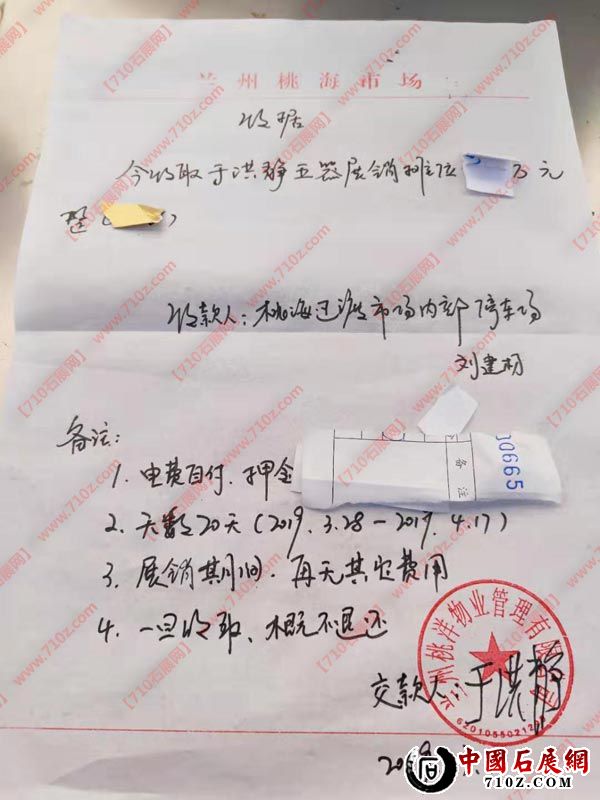 兰州桃海市场
收据
今收取于洪静玉器展销摊位 万元
整（ ）
收款人：桃海过渡市场内部停车场
刘建材
备注：
1. 电费自付. 押金
备注
00665
2. 天数20天（2019.3.28－2019.4.17）
3. 展销期间. 再无其它费用
4. 一旦收取、概不退还
州桃洋物业管理有限公司
交款人：于洪静
中國石展網
710Z.COM
【710石展网】www.710z.com